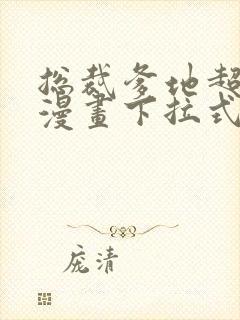 总裁爹地超
漫畫下拉式
庞清